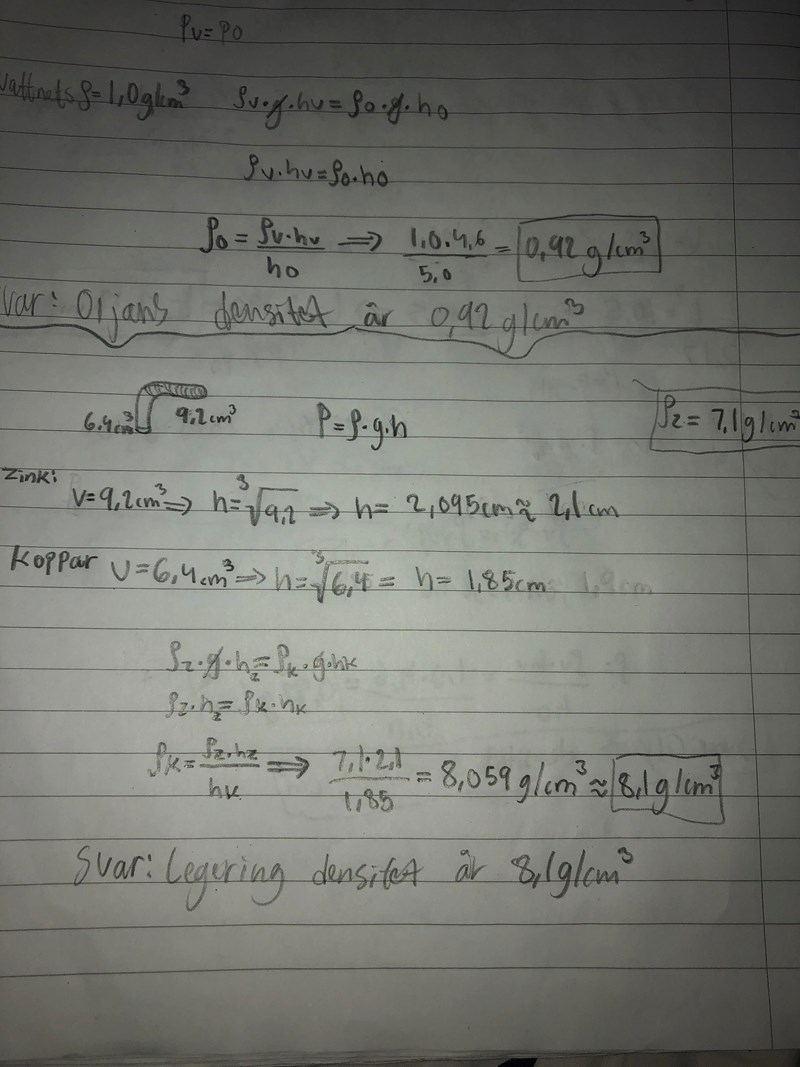 Pv = Po
Vattnets ρ = 1,0 g/cm³ ρv · g · hv = ρo · g · ho
ρv · hv = ρo · ho
ρo = ρv · hv / ho ⟹ 1,0 · 4,6 / 5,0 = 0,92 g/cm³
Svar: Oljans densitet är 0,92 g/cm³
6.4cm³ 9,2 cm³ P = ρ · g · h ρz = 7,1 g/cm³
Zink: V = 9,2 cm³ ⟹ h = ³√9,2 ⟹ h = 2,095cm ≈ 2,1 cm
Koppar V = 6,4 cm³ ⟹ h = ³√6,4 = h = 1,85cm
ρz · g · hz = ρk · g · hk
ρz · hz = ρk · hk
ρk = ρz · hz / hk ⟹ 7,1 · 2,1 / 1,85 = 8,059 g/cm³ ≈ 8,1 g/cm³
Svar: Legering densitet är 8,1g/cm³